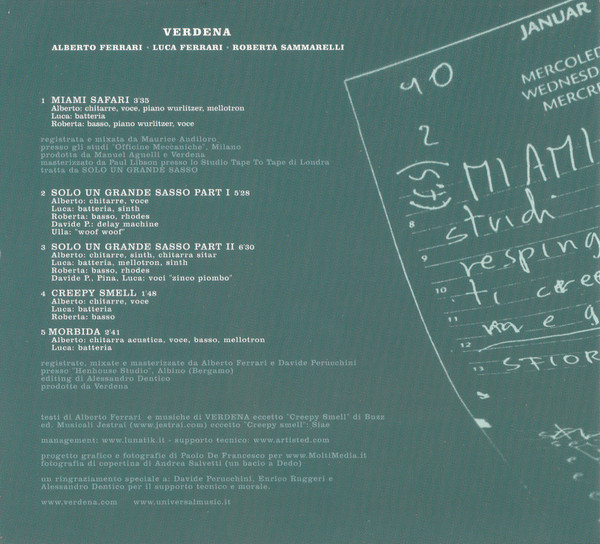 VERDENA
ALBERTO FERRARI · LUCA FERRARI · ROBERTA SAMMARELLI
1 MIAMI SAFARI 3'35
Alberto: chitarre, voce, piano wurlitzer, mellotron
Luca: batteria
Roberta: basso, piano wurlitzer, voce
registrata e mixata da Maurice Andiloro
presso gli studi "Officine Meccaniche", Milano
prodotta da Manuel Agnelli e Verdena
masterizzato da Paul Libson presso lo Studio Tape To Tape di Londra
tratta da SOLO UN GRANDE SASSO
2 SOLO UN GRANDE SASSO PART I 5'28
Alberto: chitarre, voce
Luca: batteria, sinth
Roberta: basso, rhodes
Davide P.: delay machine
Ulla: "woof woof"
3 SOLO UN GRANDE SASSO PART II 6'30
Alberto: chitarre, sinth, chitarra sitar
Luca: batteria, mellotron, sinth
Roberta: basso, rhodes
Davide P., Pina, Luca: voci "zinco piombo"
4 CREEPY SMELL 1'48
Alberto: chitarre, voce
Luca: batteria
Roberta: basso
5 MORBIDA 2'41
Alberto: chitarra acustica, voce, basso, mellotron
Luca: batteria
registrate, mixate e masterizzate da Alberto Ferrari e Davide Perucchini
presso "Henhouse Studio", Albino (Bergamo)
editing di Alessandro Dentico
prodotte da Verdena
testi di Alberto Ferrari e musiche di VERDENA eccetto "Creepy Smell" di Buzz
ed. Musicali Jestrai (www.jestrai.com) eccetto "Creepy smell": Siae
management: www.lunatik.it - supporto tecnico: www.artisted.com
progetto grafico e fotografie di Paolo De Francesco per www.MoltiMedia.it
fotografia di copertina di Andrea Salvetti (un bacio a Dedo)
un ringraziamento speciale a: Davide Perucchini, Enrico Ruggeri e
Alessandro Dentico per il supporto tecnico e morale.
www.verdena.com www.universalmusic.it
JANUAR
MERCOLED
WEDNESD
MERCRE
40
2
(4.5)
MIAMI
8 studi
9 resping
10 ti cree
11 ma e g
12
13 SFIOR